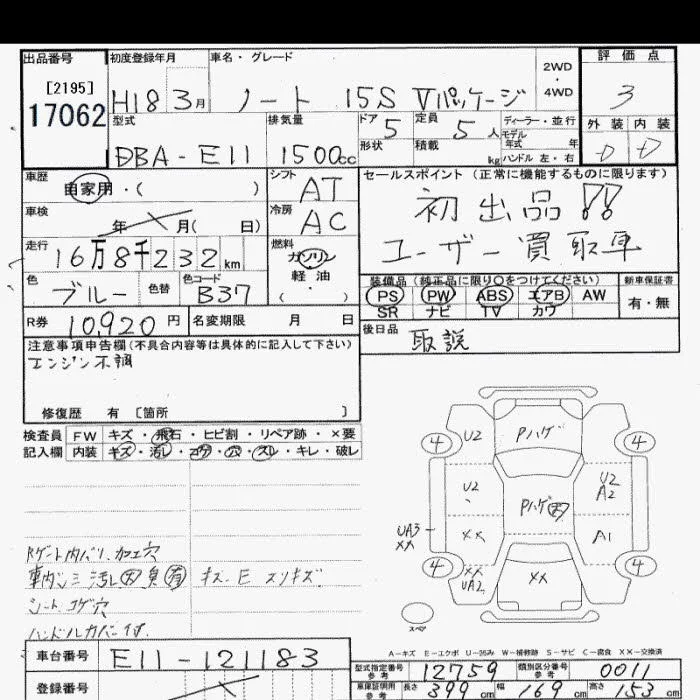 出品番号 初度登録年月 車名・グレード 2WD ・ 4WD 評価点
[2195]
17062 H18 3月 ノート 15S Vパッケージ 3
型式 排気量 ドア 定員 ディーラー・並行 外装 内装
DBA-E11 1500cc 5 5人 モデル年式 年 D D
形状 積載 kg ハンドル 左・右
車歴 自家用・( ) シフト AT セールスポイント (正常に機能するものに限ります)
車検 年 月( 日) 冷房 AC 初出品!!
走行 16万8千232km 燃料 ガソリン 軽・油 ・( ) ユーザー買取車
色 ブルー 色替 色コード B37
装備品 (純正品に限り○をつけてください) 新車保証書
PS PW ABS エアB AW 有・無
SR ナビ TV カワ
R券 10,920円 名変期限 月 日 後日品 取説
注意事項申告欄 (不具合内容等は具体的に記入して下さい)
エンジン不調
修復歴 有 [箇所 ]
検査員 FW キズ・飛石・ヒビ割・リペア跡・×要
記入欄 内装 キズ・汚レ・コゲ・穴・スレ・キレ・破レ
4 U2 Pハゲ 4
U2 Pハゲ大 U2 A2
UA3 XX XX A1
4 XX UA2 XX 4
スペア
Rゲート内バリ.加工穴
車内シミ汚レ大臭有 キズ.E スリキズ
シート コゲ穴
ハンドルカバー付.
A-キズ E-エクボ U-凹み W-補修跡 S-サビ C-腐食 XX-交換済
車台番号 E11-121183
型式指定番号 参考 12759 類別区分番号 参考 0011
登録番号
車庫証明用 参考 長さ 399cm 幅 169cm 高さ 153cm